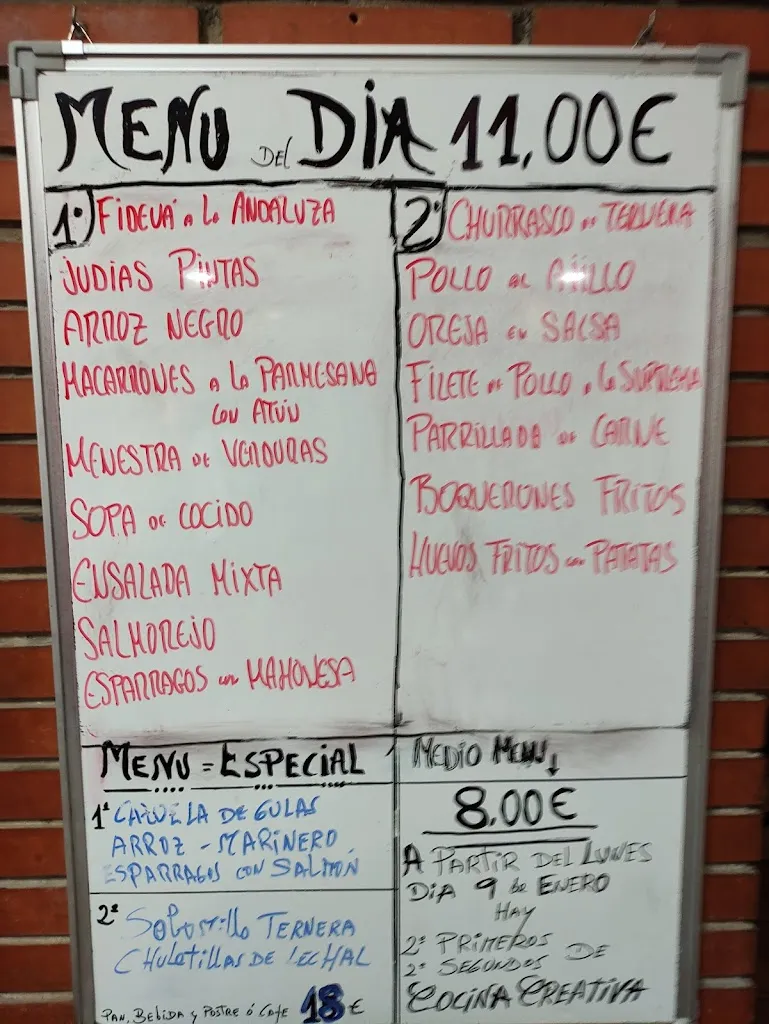 MENU DEL DIA 11,00€
1º FIDEUÁ A LA ANDALUZA
JUDIAS PINTAS
ARROZ NEGRO
MACARRONES A LA PARMESANA
CON ATÚN
MENESTRA DE VERDURAS
SOPA DE COCIDO
ENSALADA MIXTA
SALMOREJO
ESPARRAGOS CON MAHONESA
2º CHURRASCO DE TERNERA
POLLO AL AJILLO
OREJA EN SALSA
FILETE DE POLLO A LA SUPREMA
PARRILLADA DE CARNE
BOQUERONES FRITOS
HUEVOS FRITOS CON PATATAS
MENU = ESPECIAL
1º CAZUELA DE GULAS
ARROZ - MARINERO
ESPARRAGOS CON SALMÓN
2º SOLOMILLO TERNERA
CHULETILLAS DE LECHAL
PAN, BEBIDA Y POSTRE Ó CAFE 18€
MEDIO MENU ↓
8,00€
A PARTIR DEL LUNES
DIA 9 DE ENERO
HAY
2º PRIMEROS
2º SEGUNDOS DE
COCINA CREATIVA